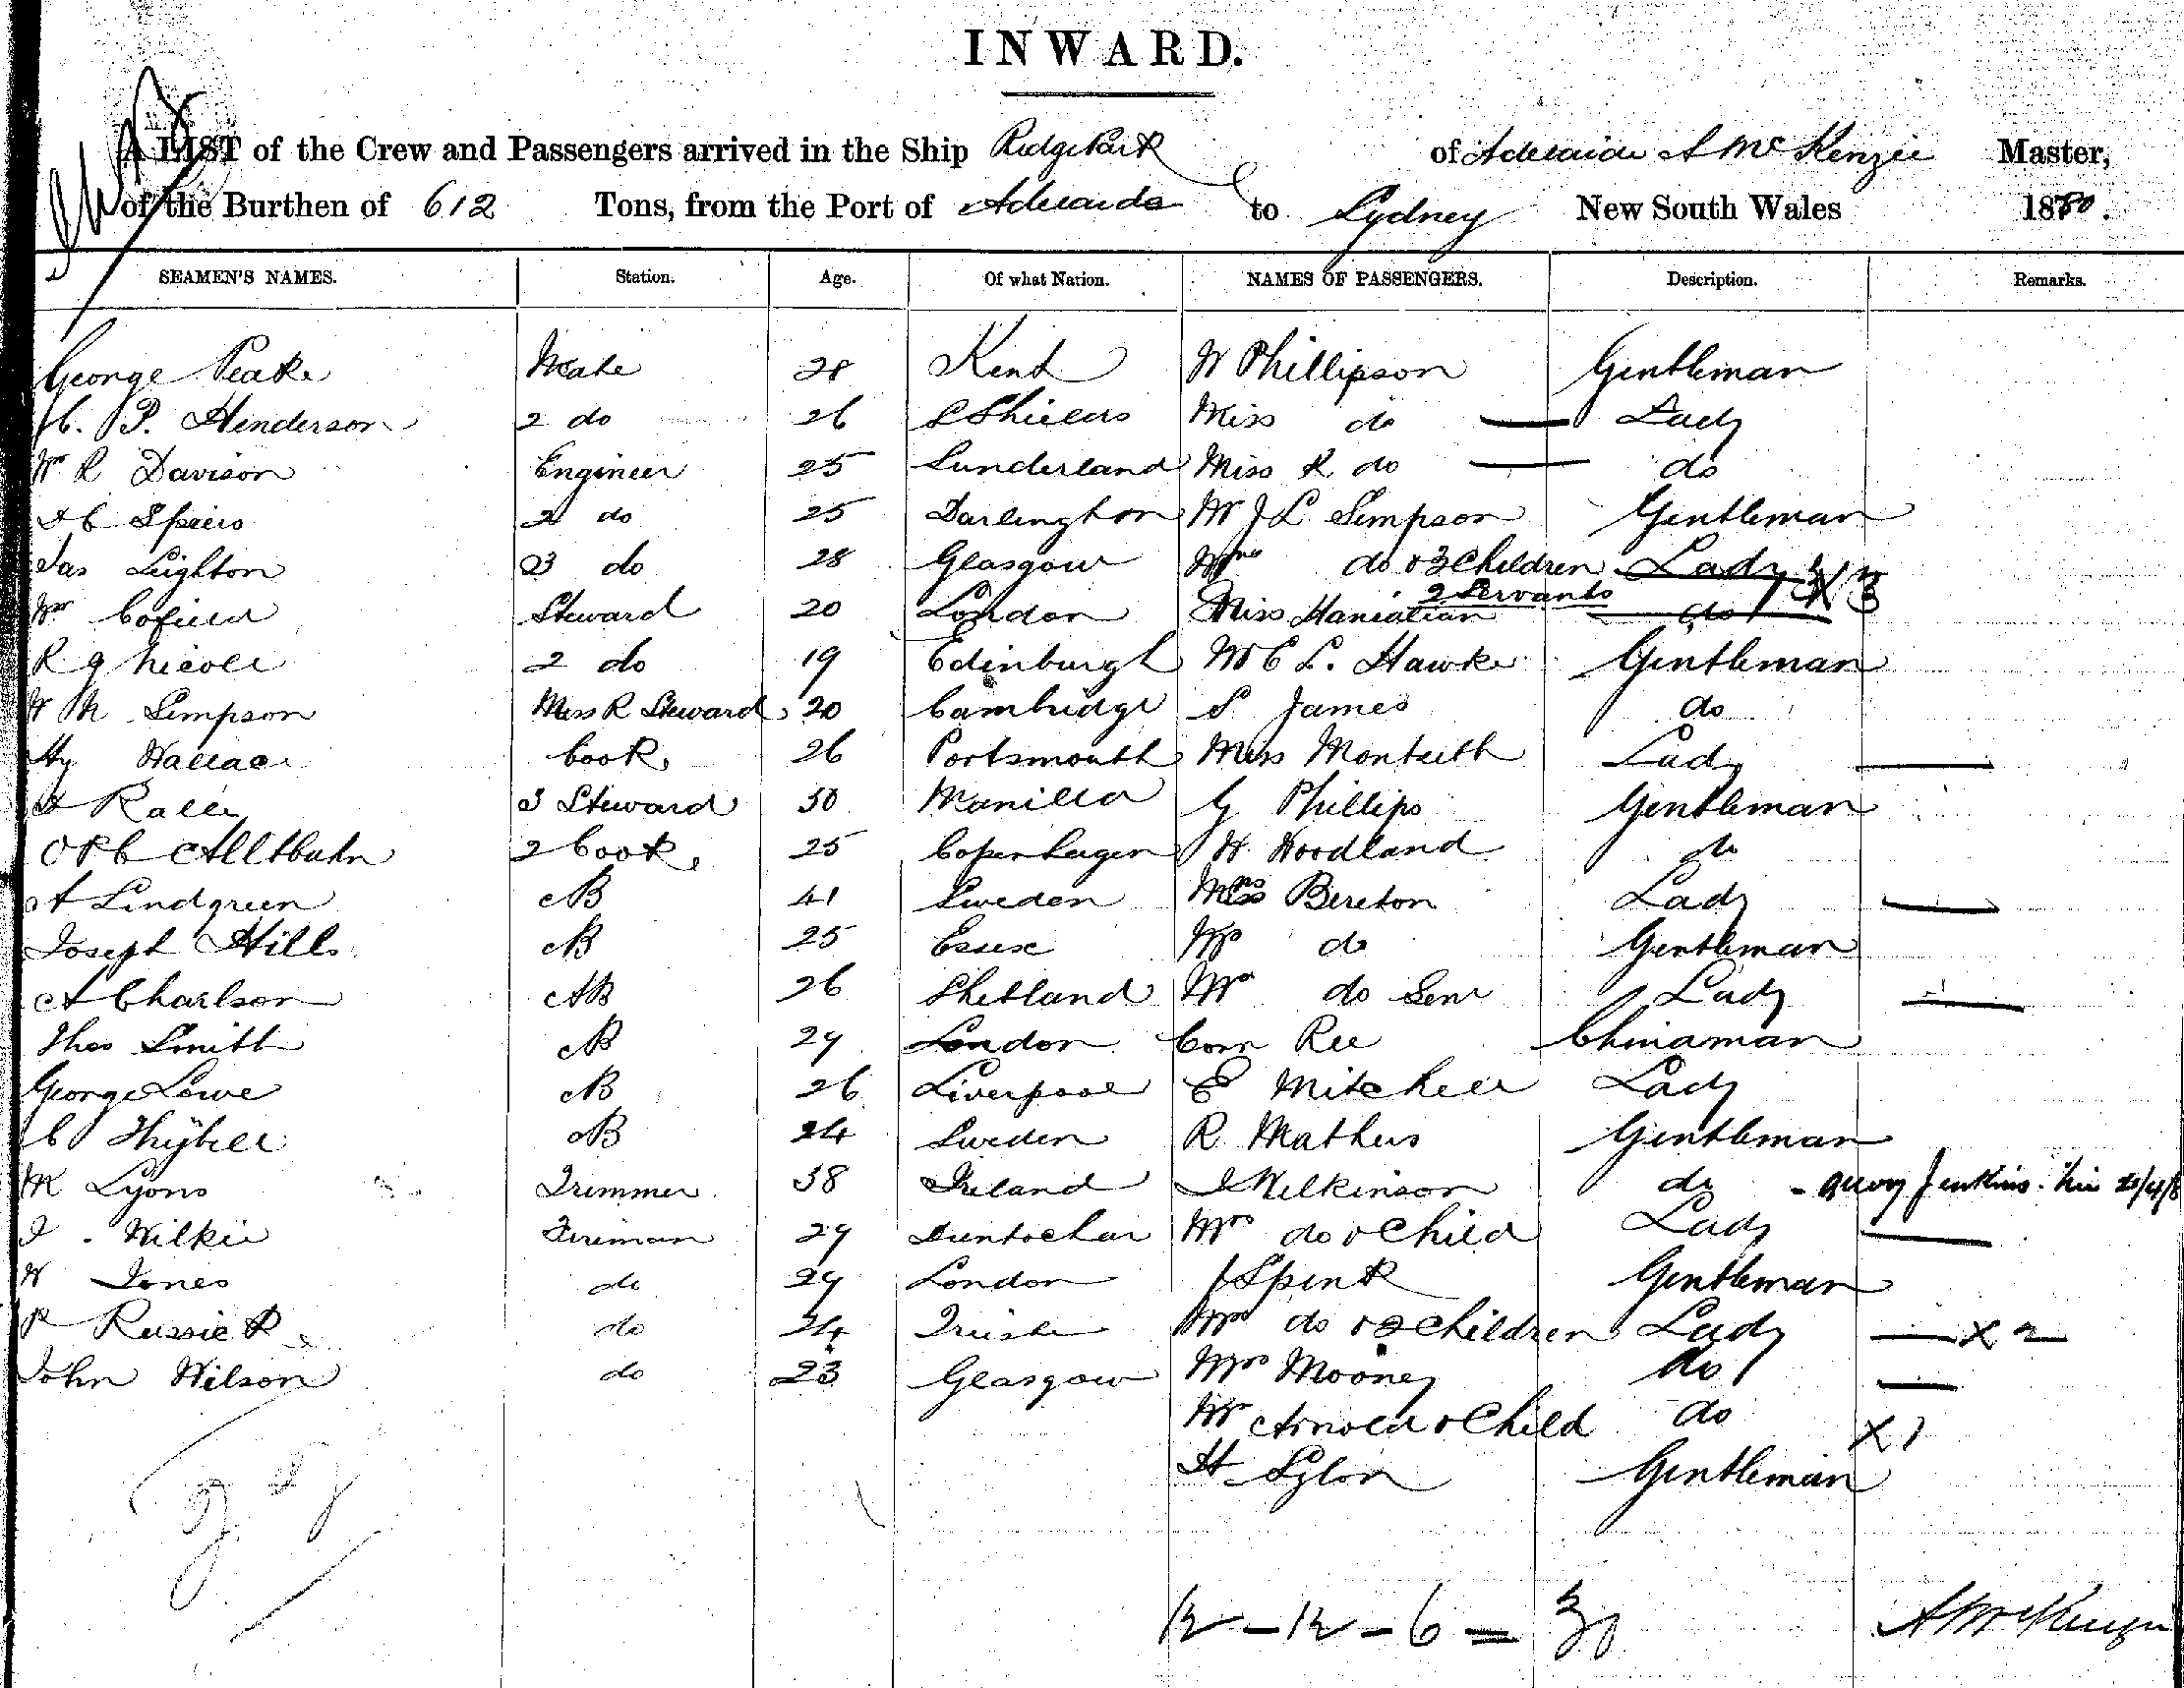 INWARD.
A LIST of the Crew and Passengers arrived in the Ship Ridge Park of Adelaide A McKenzie Master,
of the Burthen of 612 Tons, from the Port of Adelaide to Sydney New South Wales 1880.
SEAMEN'S NAMES. Station. Age. Of what Nation. NAMES OF PASSENGERS. Description. Remarks.
George Peake Mate 28 Kent W Phillipson Gentleman
H. P. Henderson 2 do 26 S Shields Miss do — Lady
Wm R Davison Engineer 25 Sunderland Miss R do — do
A C Spiers 2 do 25 Darlington Mr J L Simpson Gentleman
Jas Leighton 3 do 28 Glasgow Mrs do & 3 Children Lady
2 Servants
Wm Cofield Steward 20 London Miss do
R G Nicoll 2 do 19 Edinburgh Mr C L. Hawke Gentleman
W M Simpson Mess R Steward 20 Cambridge S James do
Hy Wallace Cook 26 Portsmouth Miss Monteith Lady —
A Ralli 3 Steward 30 Manilla G Phillips Gentleman
2 Cook 25 Copenhagen H Woodland do
A Lindgreen AB 41 Sweden Bereton Lady —
Joseph Hills AB 25 Essex Mr do Gentleman
A Charlson AB 26 Shetland Mrs do Senr Lady —
Thos Smith AB 29 London Con Kee Chinaman
George Lowe AB 26 Liverpool E Mitchell Lady
C AB 24 Sweden R Mathews Gentleman
M Lyons Trimmer 38 Ireland J Wilkinson do - query Jenkins
J. Wilkie Fireman 29 Duntocher Mrs do & Child Lady —
W Jones do 29 London J Spink Gentleman
P do 24 Mrs do & 2 Children Lady — X 2
John Wilson do 23 Glasgow Mrs Mooney do —
Mrs Arnold & Child do X 1
H Gentleman
12 - 12 - 6 = 30
A McKenzie